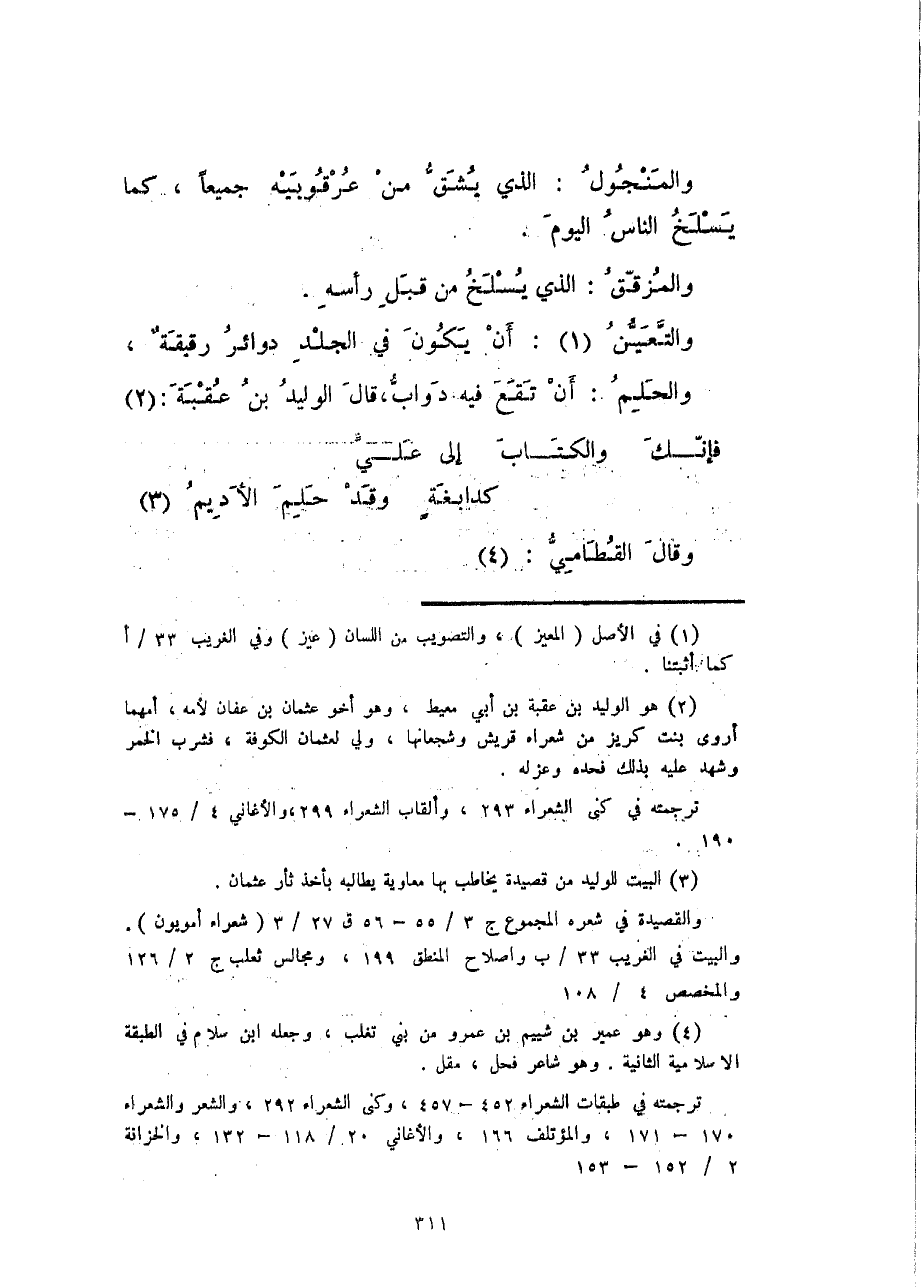 والمَنْجُولُ : الذي يُشَقُّ منْ عُرْقُوبَيْهِ جميعاً ، كما
يَسْلَخُ الناسُ اليومَ .
والمُزقّقُ : الذي يُسْلَخُ من قبَلِ رأسهِ .
والتَّعَيُّنُ (١) : أَنْ يَكُونَ في الجلْدِ دوائرُ رقيقَةٌ ،
والحَليمُ : أَنْ تَقَعَ فيه دَوابُّ،قالَ الوليدُ بنُ عُقْبَةَ :(٢)
فإنّــكَ والكتَــابَ إلى عَلــيٍّ
كدابغَةٍ وقَدْ حَلِمَ الأَدِيمُ (٣)
وقالَ القُطَاميُّ : (٤)
(١) في الأصل ( المعيز ) ، والتصويب من اللسان ( عيز ) وفي الغريب ٣٣ / أ
كما أثبتنا .
(٢) هو الوليد بن عقبة بن أبي معيط ، وهو أخو عثمان بن عفان لأمه ، أمهما
أروى بنت كريز من شعراء قريش وشجعانها ، ولي لعثمان الكوفة ، فشرب الخمر
وشهد عليه بذلك فحده وعزله .
ترجمته في كنى الشعراء ٢٩٣ ، وألقاب الشعراء ٢٩٩،والأغاني ٤ / ١٧٥ –
١٩٠ .
(٣) البيت للوليد من قصيدة يخاطب بها معاوية يطالبه بأخذ ثأر عثمان .
والقصيدة في شعره المجموع ج ٣ / ٥٥ – ٥٦ ق ٢٧ / ٣ ( شعراء أمويون ) .
والبيت في الغريب ٣٣ / ب واصلاح المنطق ١٩٩ ، ومجالس ثعلب ج ٢ / ١٢٦
والمخصص ٤ / ١٠٨
(٤) وهو عمير بن شييم بن عمرو من بني تغلب ، وجعله ابن سلام في الطبقة
الاسلامية الثانية . وهو شاعر فحل ، مقل .
ترجمته في طبقات الشعراء ٤٥٢ – ٤٥٧ ، وكنى الشعراء ٢٩٢ ، والشعر والشعراء
١٧٠ – ١٧١ ، والمؤتلف ١٦٦ ، والأغاني ٢٠ / ١١٨ – ١٣٢ ، والخزانة
٢ / ١٥٢ – ١٥٣
٣١١